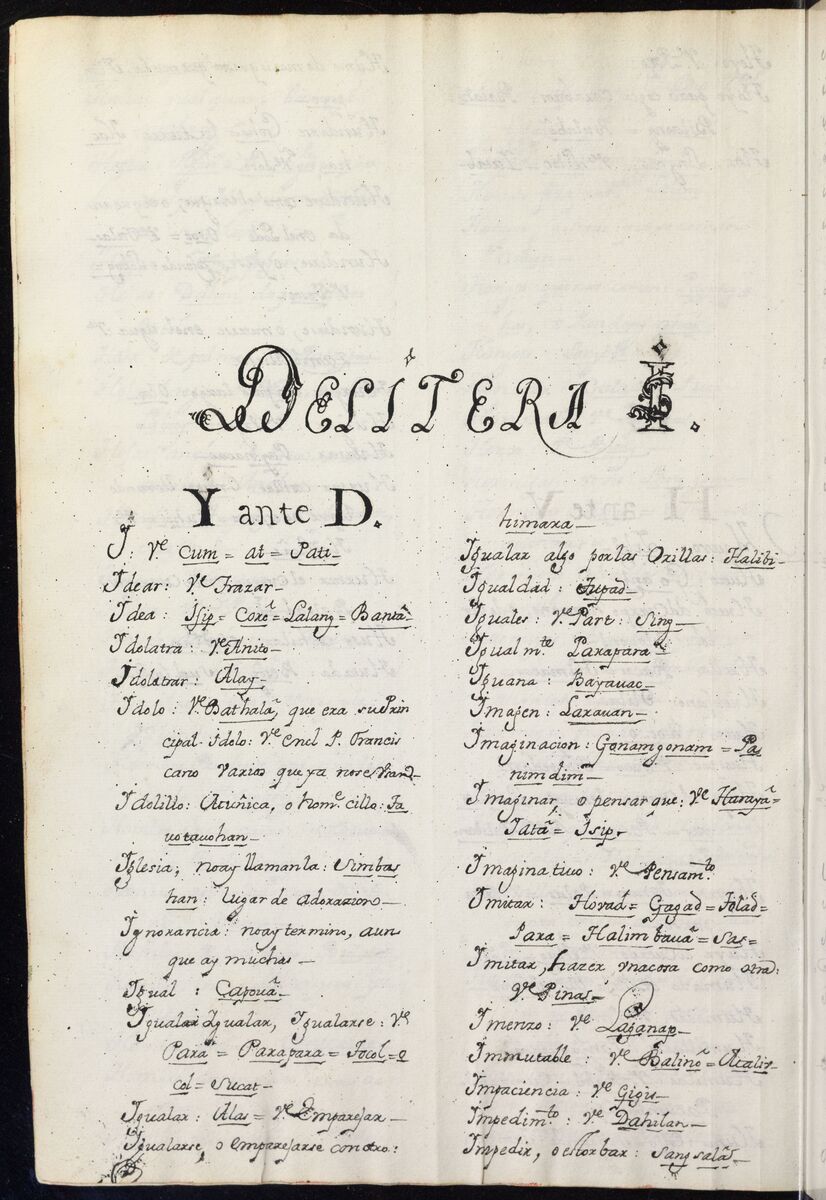 DE LITERA I.
Y ante D.
I: Ve Cum = at = Pati_
Idear: Ve Trazar_
Idea: Isip = Core~ = Lalang = Banta~_
Idolatra: Ve Anito_
Idolatrar: Alay_
Idolo: Ve Bathala~, que era su Prin
cipal Idolo: Ve en el P. Francis
cano varios que ya no se
Idolillo: o home cillo: Ta
votauohan_
Iglesia; no ay llamanla: Simbas
han: lugar de adorazion_
Ignorancia: no ay termino, aun
que ay muchas_
Igual: Capoua~_
Igualar Igualar, Igualarse: Ve
Para = Parapara =
col = Sucat_
Igualar: Alas = Ve Emparejar_
Igualarse, o emparejarse con otro:
himara_
Igualar algo por las Orillas: Halibi_
Igualdad: Tupad_
Iguales: Ve Part: Sing_
Igual mte Parapara_
Iguana: Bayauac_
Imagen: Larauan_
Imaginacion: Gonamgonam = Pa
nimdim_
Imaginar, o pensar que: Ve Haraya~=
Tata~ = Isip_
Imaginativo: Ve Pensamto.
Imitar: Hovad = Gagad = =
Para = Halimbaua~ = Sas=
Imitar, hazer vna cosa como otra:
Ve Pinas_
Imenzo: Ve Laganap_
Immutable: Ve Balino~ = Acalis_
Impaciencia: Ve Gigis_
Impedimto: Ve Dahilan_
Impedir, o estorbar: Sang sala~_